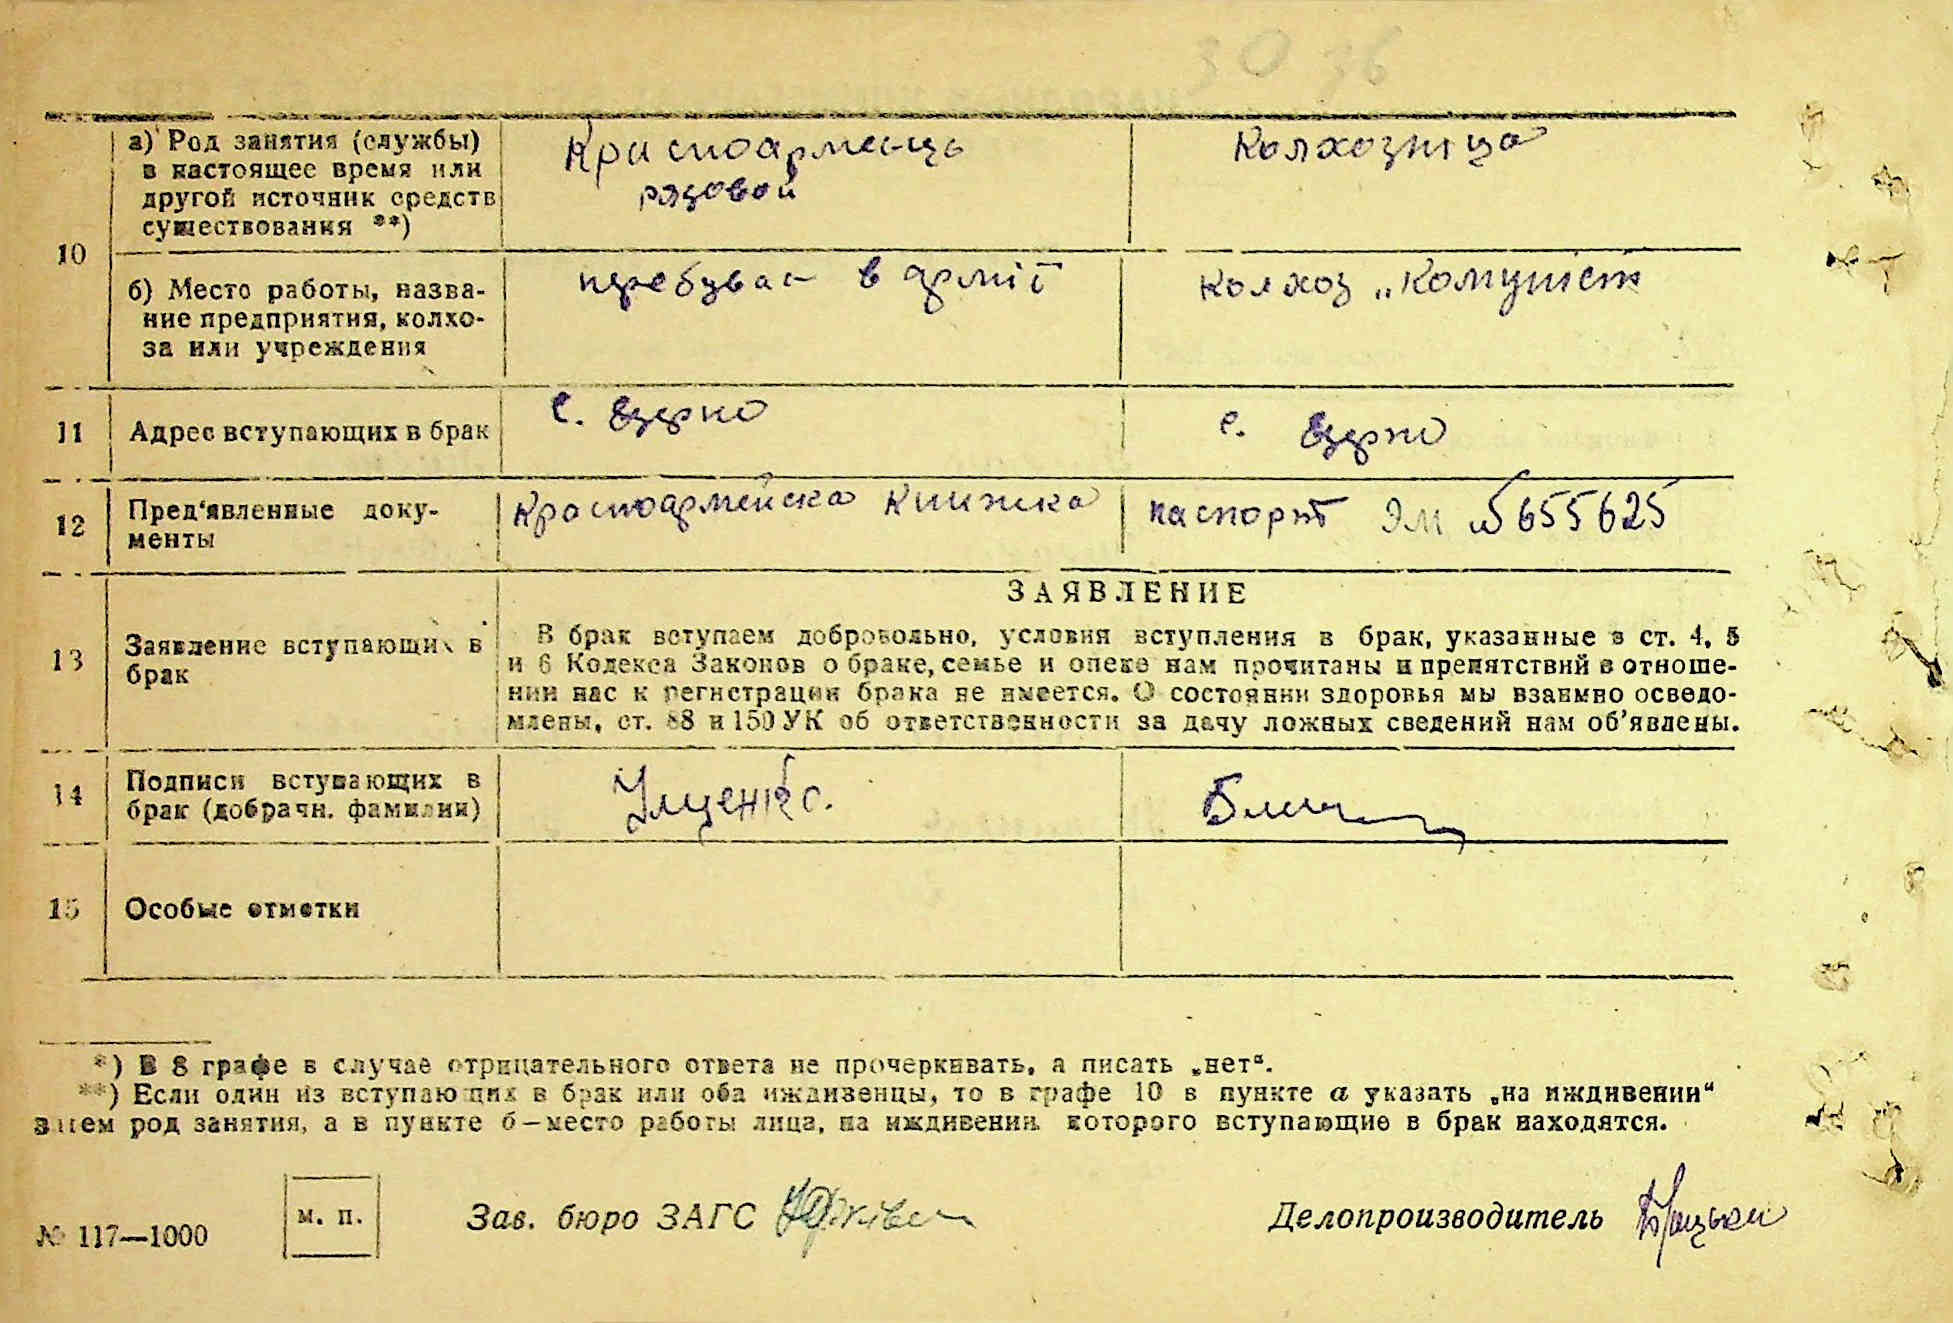 30 36
10
а) Род занятия (службы)
в настоящее время или
другой источник средств
существования **)
Красноармеець
рядовой
Колхозница
б) Место работы, назва-
ние предприятия, колхо-
за или учреждения
перебуває в армії
колхоз „Комуніст
11
Адрес вступающих в брак
с. Езерно
с. Езерно
12
Пред'явленные доку-
менты
Красноармейска Книжка
паспорт ЭМ № 655625
13
Заявление вступающих в
брак
ЗАЯВЛЕНИЕ
В брак вступаем добровольно, условия вступления в брак, указанные в ст. 4, 5
и 6 Кодекса Законов о браке, семье и опеке нам прочитаны и препятствий в отноше-
нии нас к регистрации брака не имеется. О состоянии здоровья мы взаимно осведо-
млены, ст. 88 и 150 УК об ответственности за дачу ложных сведений нам об'явлены.
14
Подписи вступающих в
брак (добрачн. фамилии)
15
Особые отметки
*) В 8 графе в случае отрицательного ответа не прочеркивать, а писать „нет“.
**) Если один из вступающих в брак или оба иждивенцы, то в графе 10 в пункте а указать „на иждивении“
затем род занятия, а в пункте б—место работы лица, на иждивении которого вступающие в брак находятся.
№ 117—1000
м. п.
Зав. бюро ЗАГС
Делопроизводитель